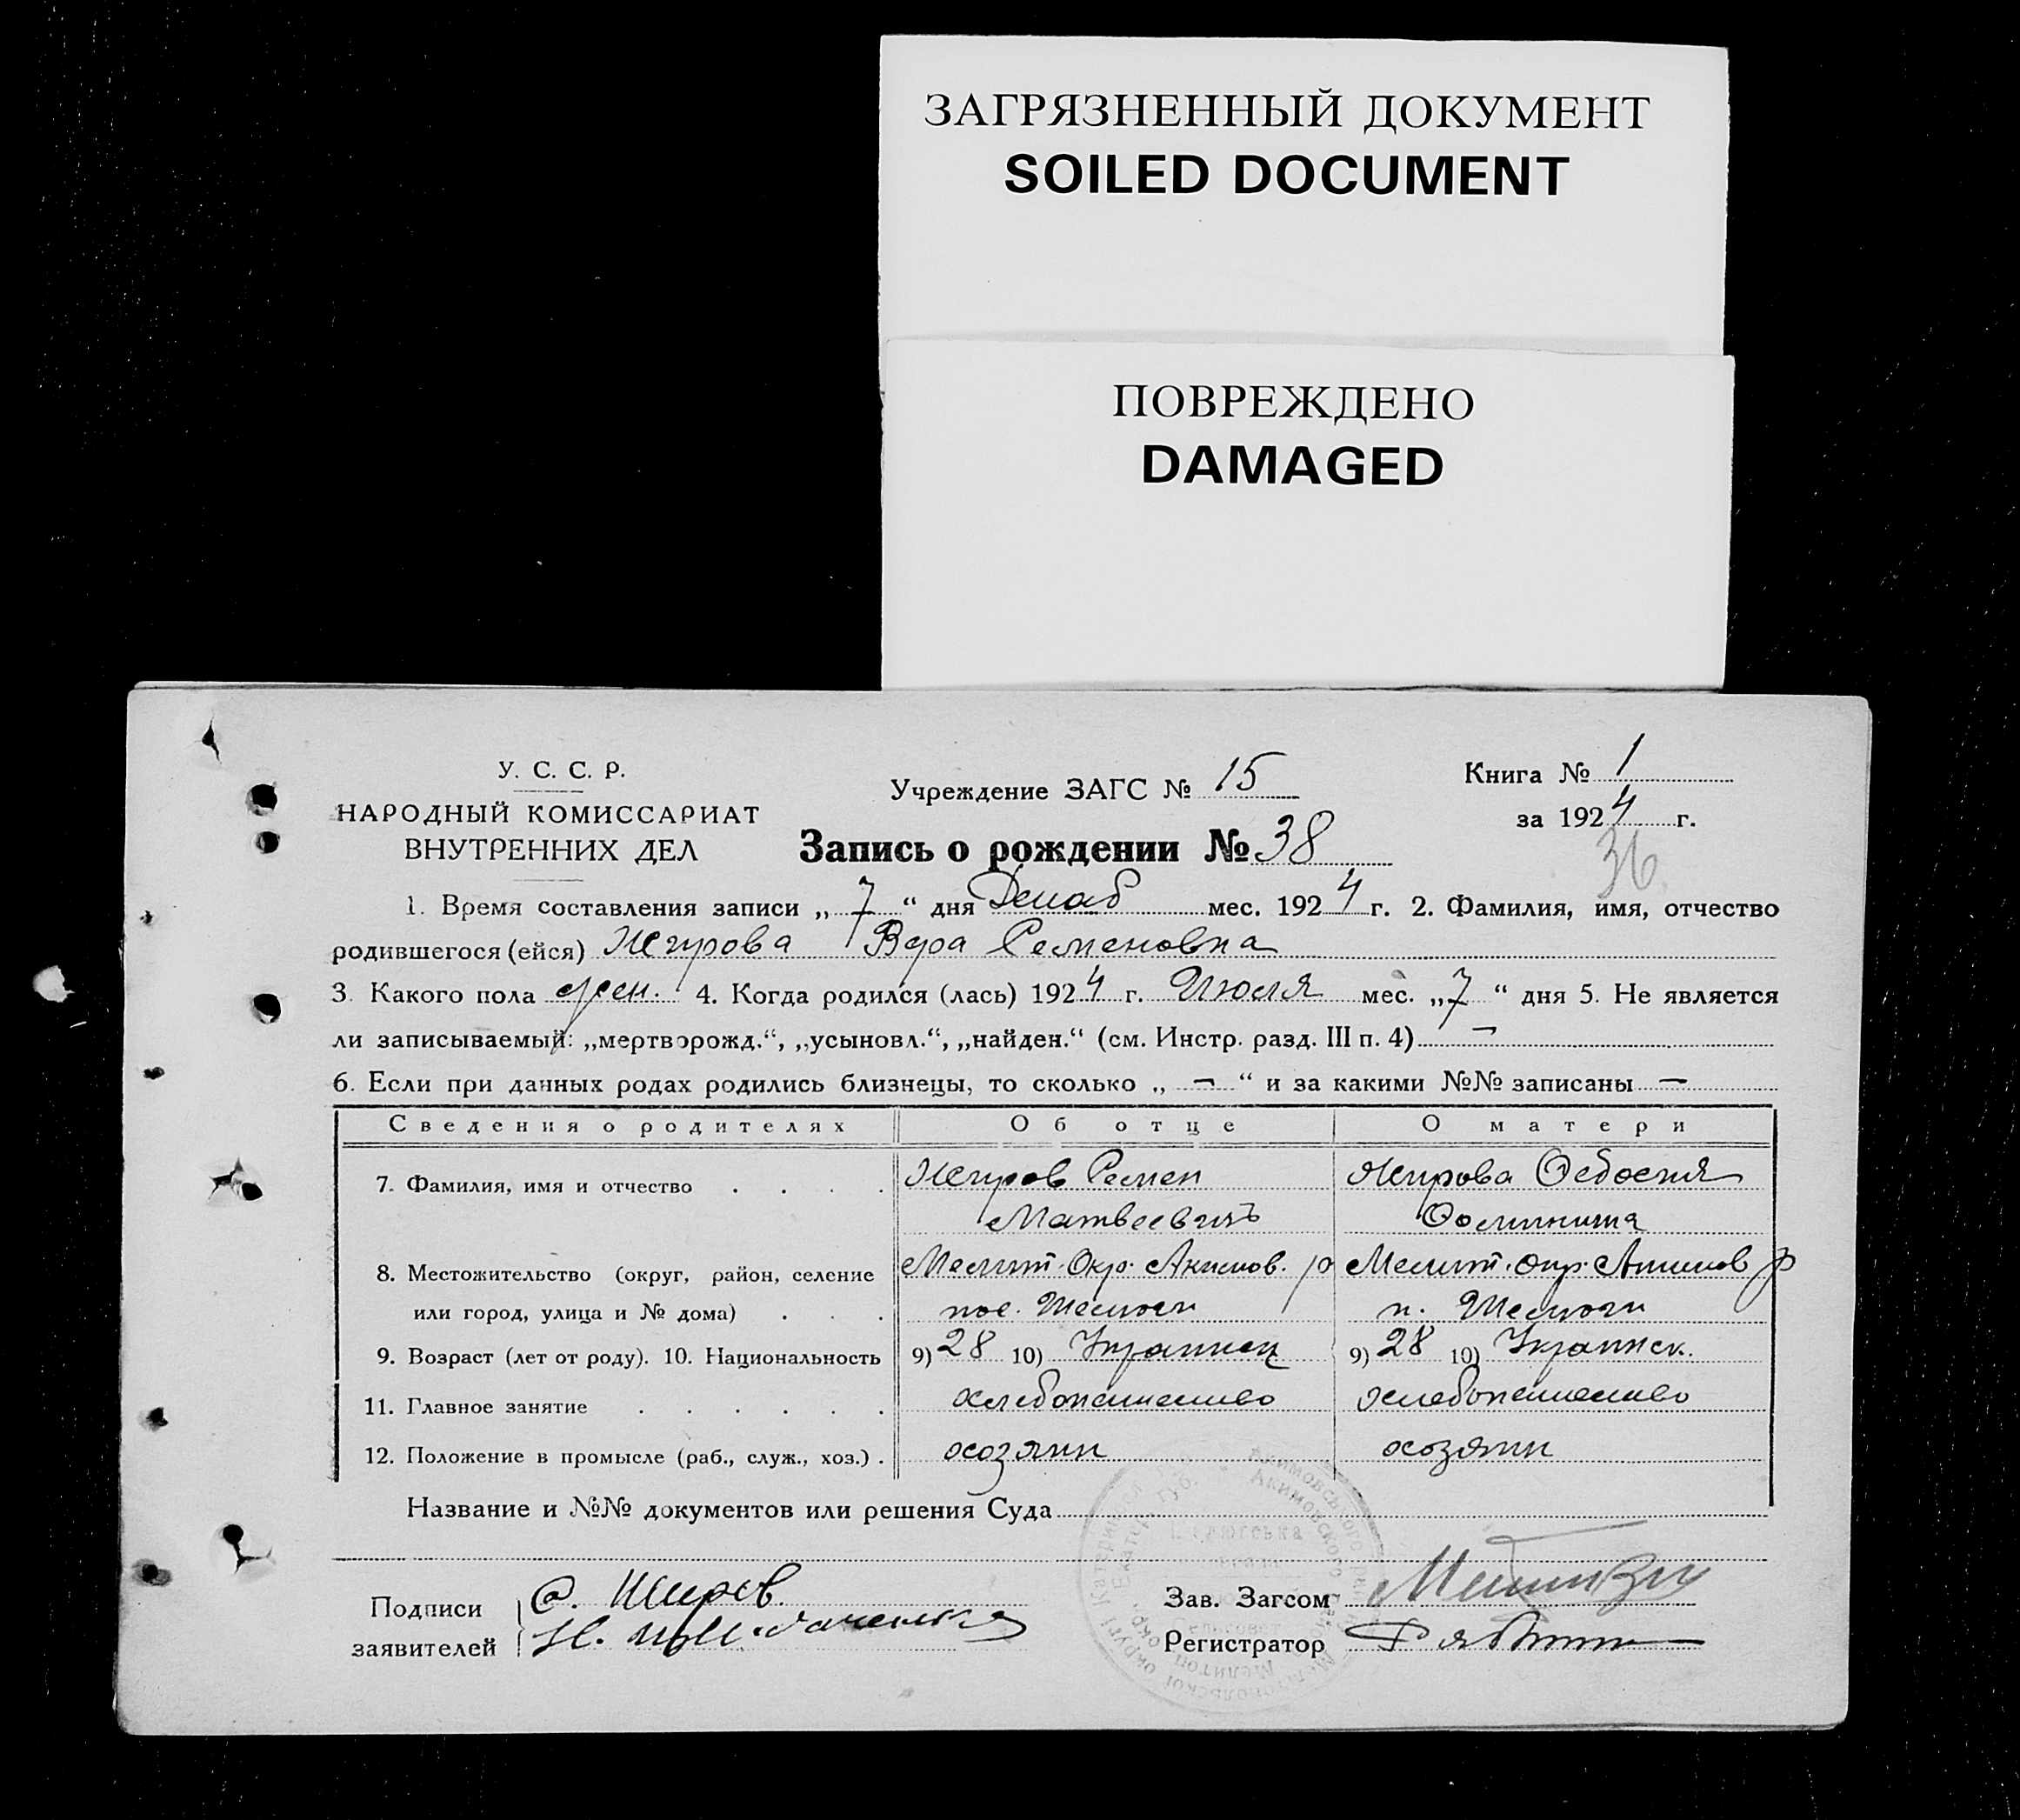 ЗАГРЯЗНЕННЫЙ ДОКУМЕНТ
SOILED DOCUMENT
ПОВРЕЖДЕНО
DAMAGED
У. С. С. Р.
НАРОДНЫЙ КОМИССАРИАТ
ВНУТРЕННИХ ДЕЛ
Учреждение ЗАГС № 15
Книга № 1
за 1924 г.
Запись о рождении № 38
36
1. Время составления записи „ 7 “ дня Декаб мес. 1924 г. 2. Фамилия, имя, отчество
родившегося (ейся) Жгурова Вера Семеновна
3. Какого пола жен. 4. Когда родился (лась) 1924 г. Июля мес. „ 7 “ дня 5. Не является
ли записываемый: „мертворожд.“, „усыновл.“, „найден.“ (см. Инстр. разд. III п. 4) —
6. Если при данных родах родились близнецы, то сколько „ — “ и за какими №№ записаны —
Сведения о родителях Об отце О матери
7. Фамилия, имя и отчество . . . . Семен
Матвеевичъ
8. Местожительство (округ, район, селение Мелит. Окр. Акимов. р Мелит. окр. Акимов р
или город, улица и № дома) . . . пос. п.
9. Возраст (лет от роду). 10. Национальность 9) 28 10) Украинец 9) 28 10) Украинск.
11. Главное занятие . . . . . . хлебопашество хлебопашество
12. Положение в промысле (раб., служ., хоз.) . хозяин хозяин
Название и №№ документов или решения Суда
Подписи С.
заявителей
Зав. Загсом
Регистратор